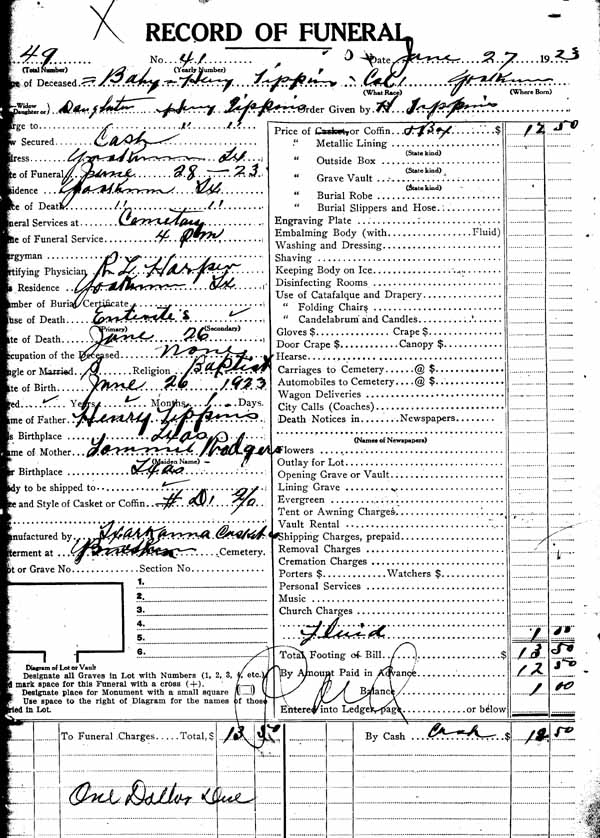 RECORD OF FUNERAL
49 No. 41 Date June 27 1923
(Total Number) (Yearly Number)
e of Deceased = Baby - Henry Tippins - Col Yoakum
(What Race) (Where Born)
Widow
Daughter or) Daughter Henry Tippins Order Given by H Tippins
arge to " "
w Secured Cash
dress Yoakum Tx
te of Funeral June 28 - 23
sidence Yoakum Tx
ce of Death " "
neral Services at Cemetary
me of Funeral Service 4 pm
rgyman
rtifying Physician R L Harper
is Residence Yoakum Tx
mber of Burial Certificate
use of Death
(Primary) (Secondary)
te of Death June 26
cupation of the Deceased None
gle or Married S Religion Baptist
te of Birth June 26 1923
ged Years Months 1 Days.
me of Father Henry Tippins
is Birthplace Texas
me of Mother Tommie Rodgers
(Maiden Name)
er Birthplace Texas
dy to be shipped to
ze and Style of Casket or Coffin # D1 2/0
anufactured by Texarkanna Casket Co
terment at Cemetery.
ot or Grave No. Section No.
1.
2.
3.
4.
5.
6.
Diagram of Lot or Vault
Designate all Graves in Lot with Numbers (1, 2, 3, 4, etc.)
d mark space for this Funeral with a cross (+).
Designate place for Monument with a small square
Use space to the right of Diagram for the names of those
ried in Lot.
Price of Casket, or Coffin $ 12 50
" Metallic Lining
(State kind)
" Outside Box
(State kind)
" Grave Vault
(State kind)
" Burial Robe
" Burial Slippers and Hose
Engraving Plate
Embalming Body (with Fluid)
Washing and Dressing
Shaving
Keeping Body on Ice
Disinfecting Rooms
Use of Catafalque and Drapery
" Folding Chairs
" Candelabrum and Candles
Gloves $ Crape $
Door Crape $ Canopy $
Hearse
Carriages to Cemetery @ $
Automobiles to Cemetery @ $
Wagon Deliveries
City Calls (Coaches)
Death Notices in Newspapers
(Names of Newspapers)
Flowers
Outlay for Lot
Opening Grave or Vault
Lining Grave
Evergreen
Tent or Awning Charges
Vault Rental
Shipping Charges, prepaid
Removal Charges
Cremation Charges
Porters $ Watchers $
Personal Services
Music
Church Charges
Fluid 1 00
Total Footing of Bill 13 50
By Amount Paid in Advance 12 50
Balance 1 00
Entered into Ledger, page or below
To Funeral Charges Total, $ 13 50 By Cash Cash $ 12 50
One Dollar Due